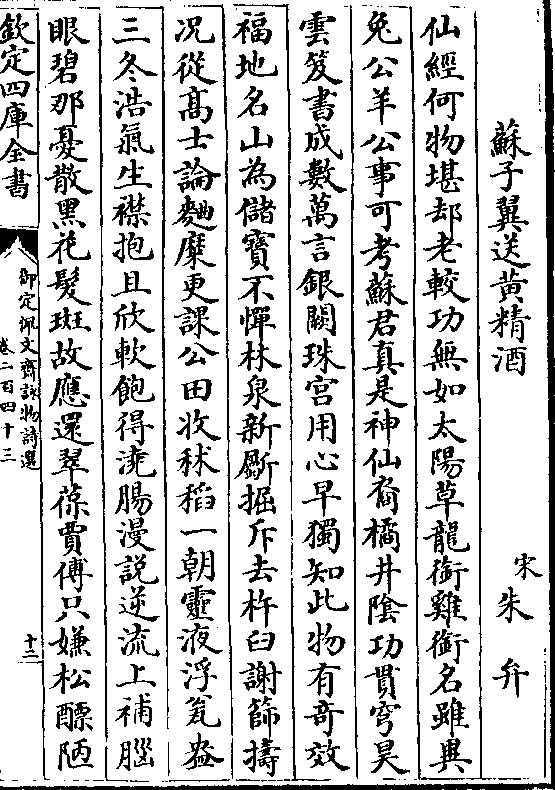 蘇子翼送黄精酒
宋朱弁
仙經何物堪却老較功無如太陽草龍銜雞銜名雖與
兔公羊公事可考蘇君真是神仙裔橘井陰功貫穹昊
雲笈書成數萬言銀闕珠宮用心早獨知此物有竒效
福地名山為儲寳不憚林泉新斸掘斥去杵臼謝篩擣
况從髙士論麯糵更課公田收秫稻一朝靈液浮瓮盎
三冬浩氣生襟抱且欣軟飽得澆腸漫説逆流上補腦
眼碧那憂散黑花髮斑故應還翠葆賈傅只嫌松醪陋
欽定四庫全書
御定佩文齋詠物詩選
卷二百四十三
十二